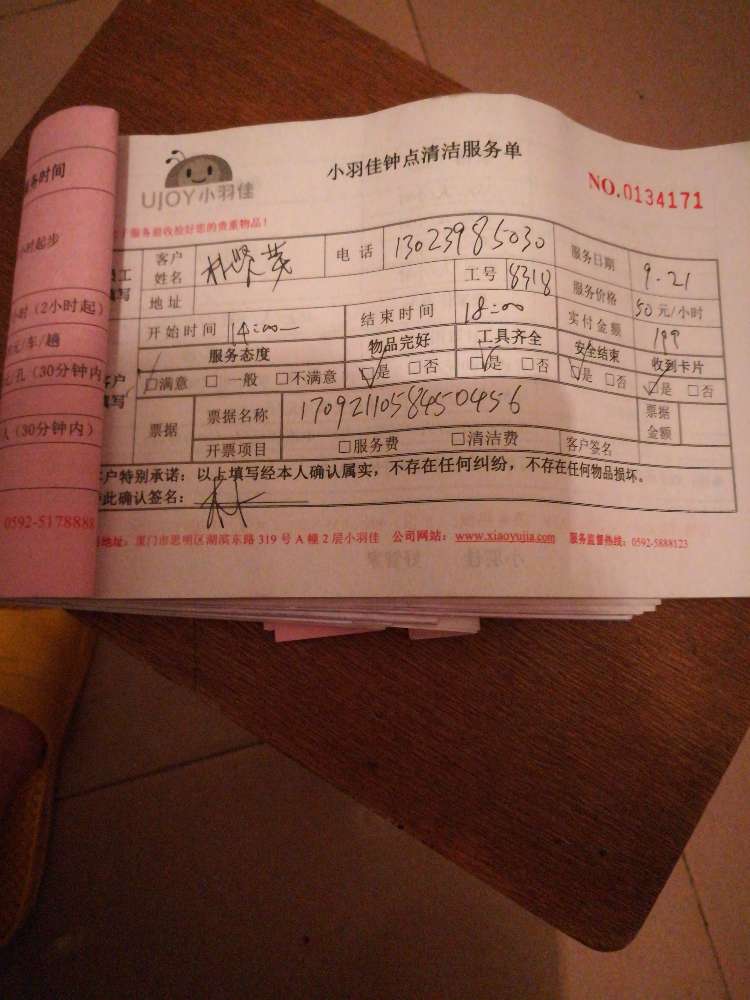 务时间
小时起步
小时（2小时起）
元/车/趟
元/孔（30分钟内
人（30分钟内）
0592-5178888
UJOY小羽佳
小羽佳钟点清洁服务单
NO.0134171
服务验收检好您的贵重物品！
员工填写 客户姓名 林贤英 电话 13023985030 服务日期 9.21
地址 工号 8318 服务价格 50元/小时
开始时间 14:00 结束时间 18:00 实付金额 199
服务态度 物品完好 工具齐全 安全结束 收到卡片
客户填写 □满意 □一般 □不满意 □是 □否 □是 □否 □是 □否 □是 □否
票据 票据名称 1709211058450456 票据金额
开票项目 □服务费 □清洁费 客户签名
客户特别承诺：以上填写经本人确认属实，不存在任何纠纷，不存在任何物品损坏。
此确认签名： 林
地址：厦门市思明区湖滨东路319号A幢2层小羽佳 公司网站：www.xiaoyujia.com 服务监督热线：0592-5888123